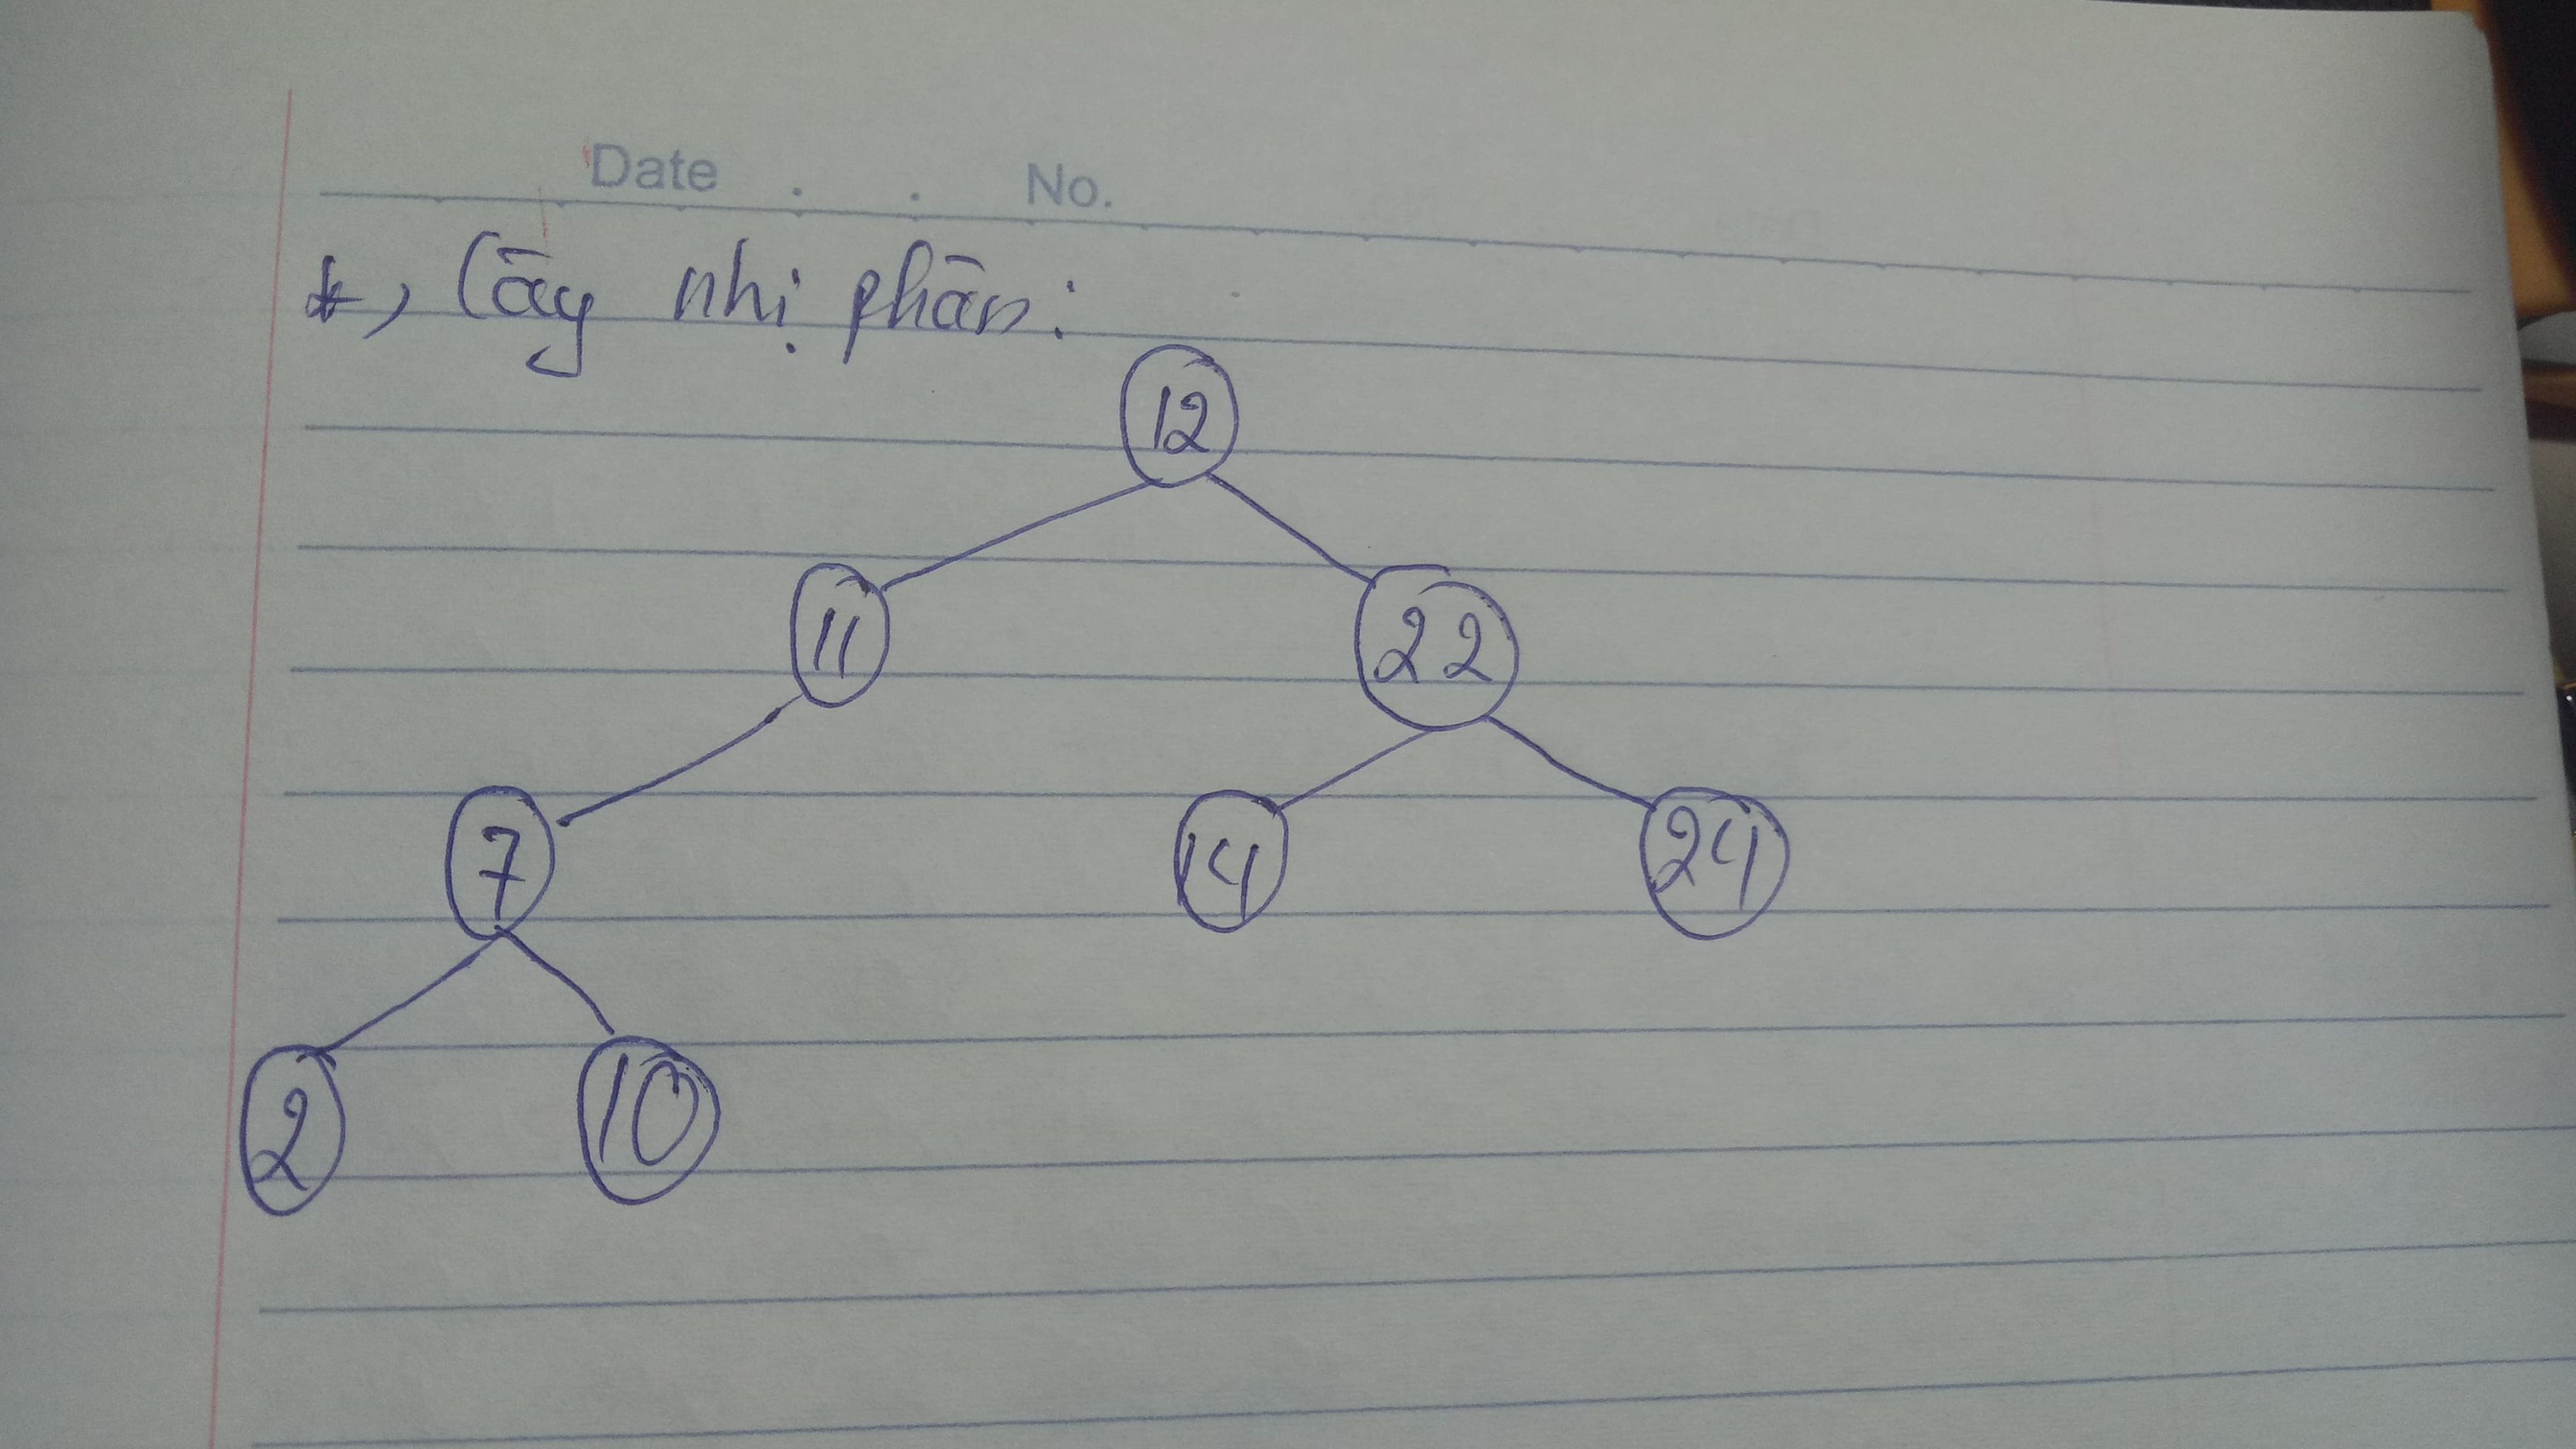 Date . . No.
*, Cây nhị phân:
12
11 22
7 14 24
2 10